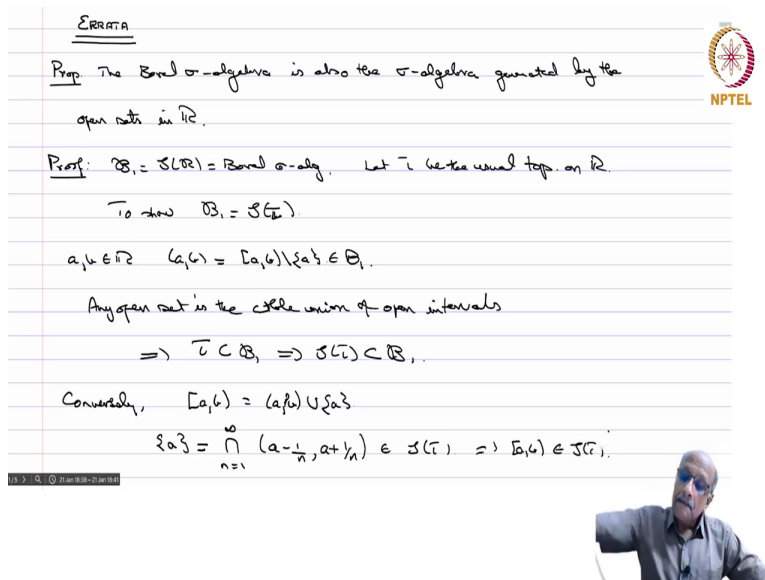 ERRATA
Prop. The Borel σ-algebra is also the σ-algebra generated by the
open sets in ℝ.
NPTEL
Proof: 𝓑₁ = S(R) = Borel σ-alg. Let τ be the usual top. on ℝ.
To show 𝓑₁ = S(τ).
a,b ∈ ℝ (a,b) = [a,b) \ {a} ∈ 𝓑₁.
Any open set is the ctble union of open intervals
⇒ τ ⊂ 𝓑₁ ⇒ S(τ) ⊂ 𝓑₁.
Conversely, [a,b) = (a,b) ∪ {a}
{a} = ∩_{n=1}^{∞} (a-1/n, a+1/n) ∈ S(τ) ⇒ [a,b) ∈ S(τ).
1/5 21 Jan 18:38 – 21 Jan 18:41